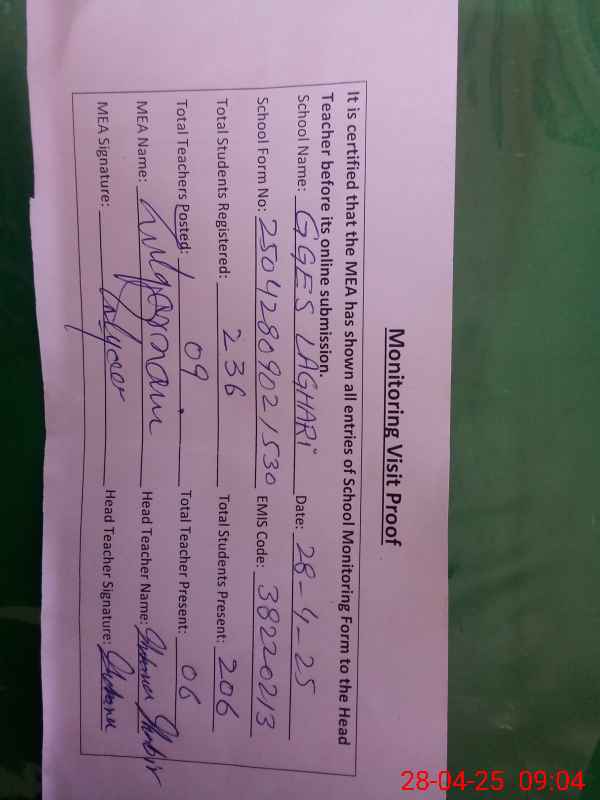 Monitoring Visit Proof
It is certified that the MEA has shown all entries of School Monitoring Form to the Head
Teacher before its online submission.
School Name: GGES LAGHARI Date: 28-4-25
School Form No: 25042809021530 EMIS Code: 38220213
Total Students Registered: 236 Total Students Present: 206
Total Teachers Posted: 09 Total Teacher Present: 06
MEA Name: Head Teacher Name: Shabir
MEA Signature: Head Teacher Signature:
28-04-25 09:04